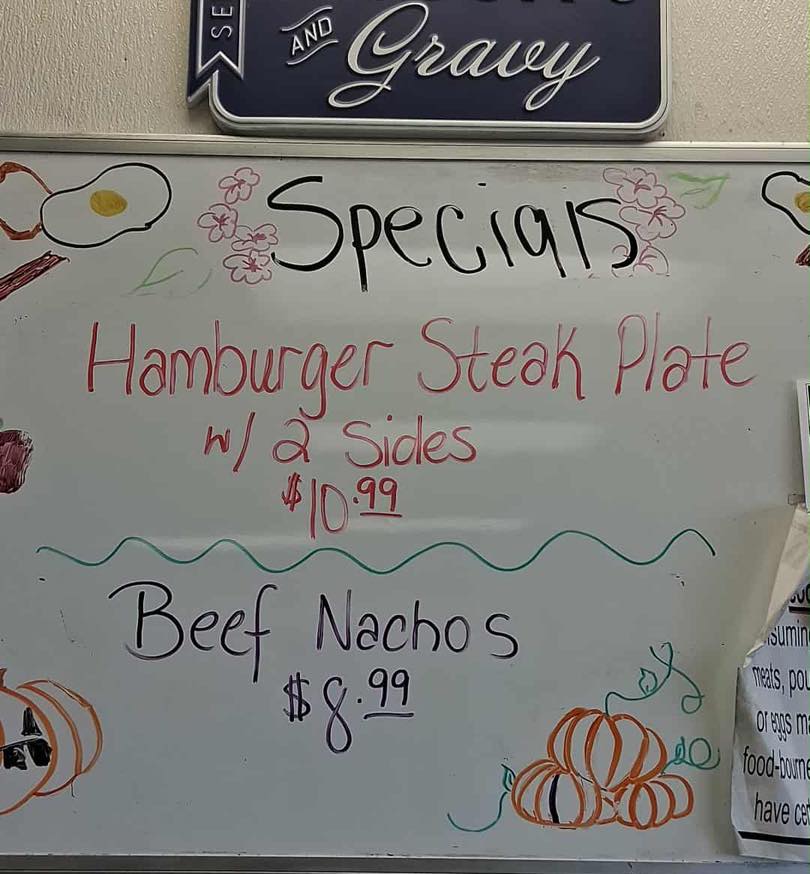 SE
AND
Gravy
Specials
Hamburger Steak Plate
w/ 2 Sides
$10.99
Beef Nachos
$8.99
meats, pou
or eggs m
food-bourne
have cer